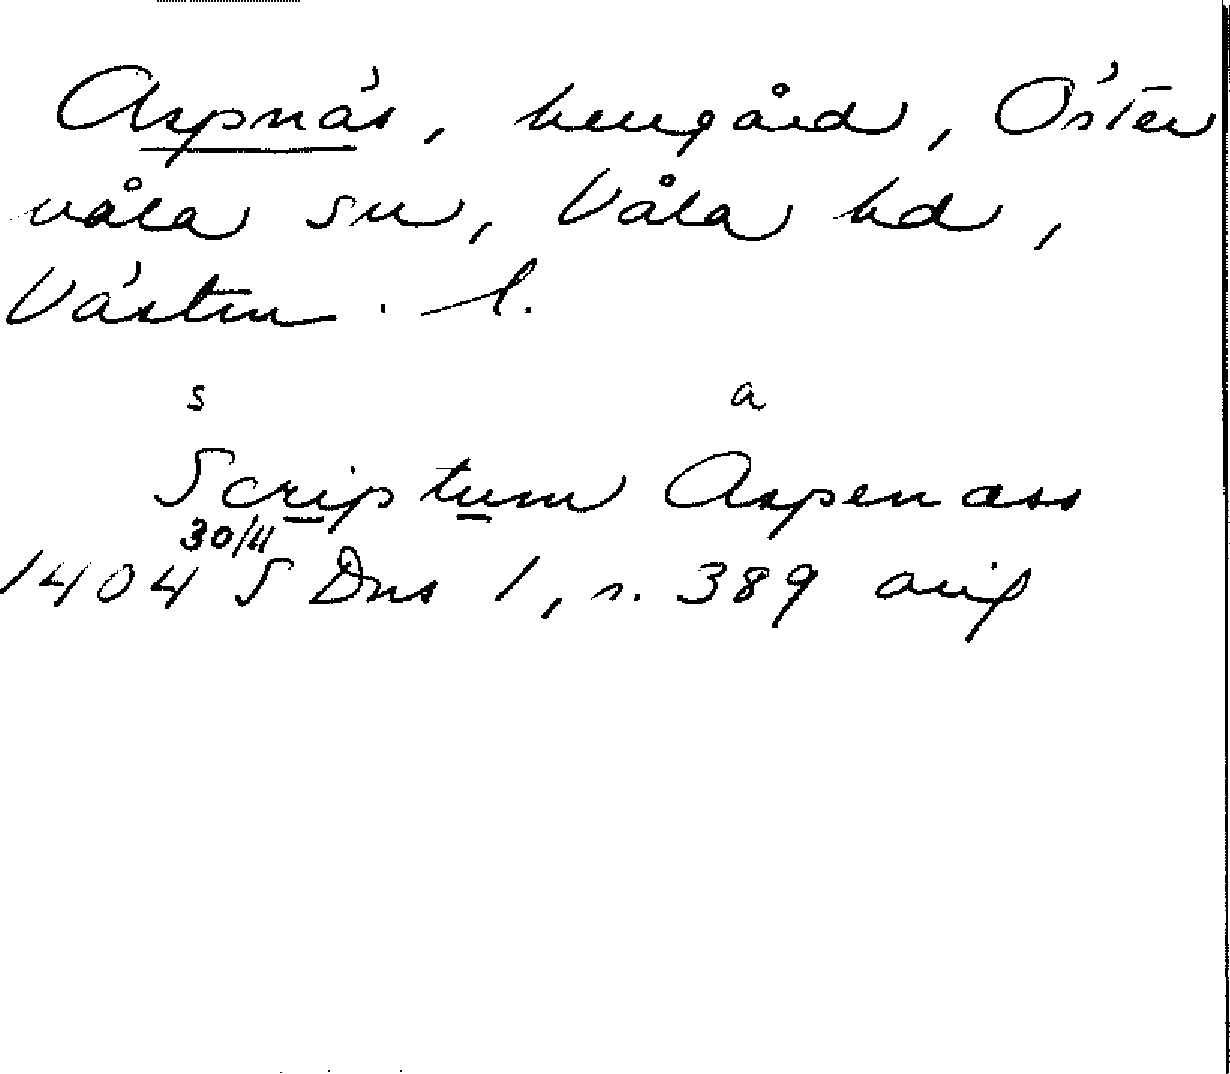 Aspnäs, herrgård, Öster
våla sn, Våla hd,
Västm. l.
s a
Scriptum Aspenass
30/11
1404 S Dns 1, s. 389 orig